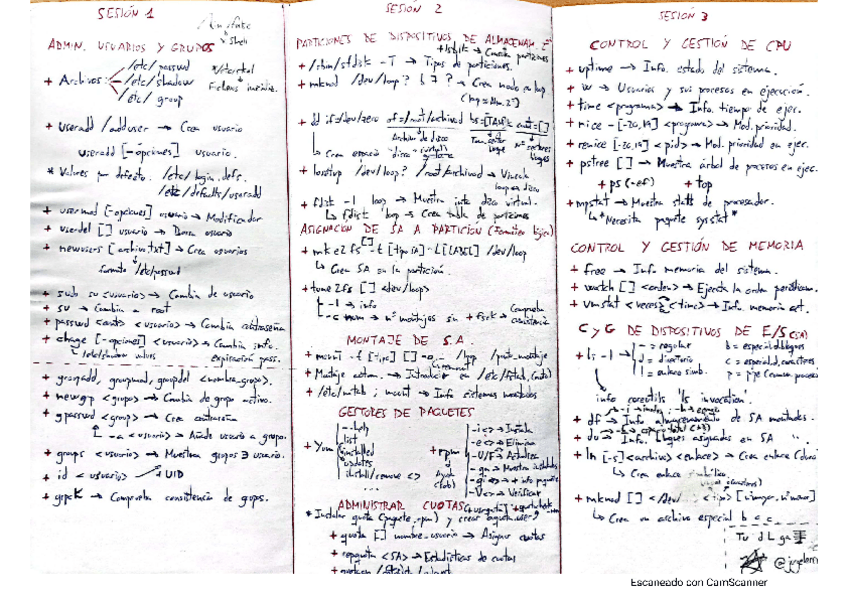 SESIÓN 1
/bin/false
Shell
ADMIN. USUARIOS Y GRUPOS
/etc/passwd
+ Archivos /etc/shadow
/etc/ group
+ useradd / adduser → Crea usuario
useradd [-opciones] usuario.
* Valores por defecto. /etc/login.defs.
/etc/defaults/useradd
+ usermod [-opciones] usuario → Modificador
+ userdel [] usuario → Borra usuario
+ newusers [archivo.txt] → Crea usuarios
formato /etc/passwd
+ sudo su <usuario> → Cambia de usuario
+ su → Cambia a root
+ passwd <usuario> → Cambia contraseña
+ chage [-opciones] <usuario> → Cambia info.
expiración pass.
+ groupadd, groupmod, groupdel <nombre_grupo>.
+ newgrp <grupo> → Cambia de grupo activo.
+ gpasswd <grupo> → Crea contraseña
-a <usuario> → Añade usuario a grupo.
+ groups <usuario> → Muestra grupos ∃ usuario.
+ id <usuario> → UID
+ grpck → Comprueba consistencia de grups.
SESIÓN 2
PARTICIONES DE DISPOSITIVOS DE ALMACENAM.
+ /sbin/sfdisk -T → Tipos de particiones.
+ mknod /dev/loop? b 7 ? → Crea nodo en loop
+ dd if=/dev/zero of=/root/archivo0 bs=[TAM]K count=[]
Archivo de disco
+ losetup /dev/loop? /root/archivo0 → Vincula
loop a disco
+ fdisk -l loop → Muestra info disco virtual.
↳ fdisk loop → Crea tabla de particiones
ASIGNACION DE SA A PARTICIÓN (Formateo lógico)
+ mke2fs [] -t [tipo SA] -L [LABEL] /dev/loop
↳ Crea SA en la partición.
+ tune2fs [] <dev/loop>
-l → info
-c num → nº montajes sin + fsck → Comprueba
consistencia
MONTAJE DE S.A.
+ mount -t [tipo] [] -o /loop /pnto_montaje
+ Montaje autom. → Introducir en /etc/fstab
+ /etc/mtab ; mount → Info sistemas montados
GESTORES DE PAQUETES
+ Yum
--help
list
installed
updates
install/remove <>
...
+ rpm
-i <> → Instala
-e <> → Elimina
-U/F → Actualiza
-qa → Muestra instalados
-qi <> → + info paquete
-V <> → Verificar
ADMINISTRAR CUOTAS
* Instalar quota (paquete .rpm) y crear
+ quota [] nombre_usuario → Asignar cuotas
+ repquota <SA> → Estadísticas de cuotas
SESIÓN 3
CONTROL Y GESTIÓN DE CPU
+ uptime → Info. estado del sistema.
+ w → Usuarios y sus procesos en ejecución.
+ time <programa> → Info. tiempo de ejec.
+ nice -[-20,19] <programa> → Mod. prioridad.
+ renice [-20,19] <pid> → Mod. prioridad en ejec.
+ pstree [] → Muestra árbol de procesos en ejec.
+ ps (-ef) + top
+ mpstat → Muestra stats de procesador.
↳ *Necesita paquete sysstat*
CONTROL Y GESTIÓN DE MEMORIA
+ free → Info memoria del sistema.
+ watch [] <orden> → Ejecuta la orden periódicam.
+ vmstat <veces> <time> → Info. memoria act.
C y G DE DISPOSITIVOS DE E/S (SA)
+ ls -l
- = regular b = especial d. bloques
d = directorio c = especial d. caracteres
l = enlace simb. p = pipe
info coreutils 'ls invocation'.
+ df → Info almacenamiento de SA montados.
+ du → Info. bloques asignados en SA
+ ln [-s] <archivo> <enlace> → Crea enlace
↳ Crea enlace simbólico
+ mknod [] <tipo> [nmayor, nmenor]
↳ Crea un archivo especial b c
Escaneado con CamScanner